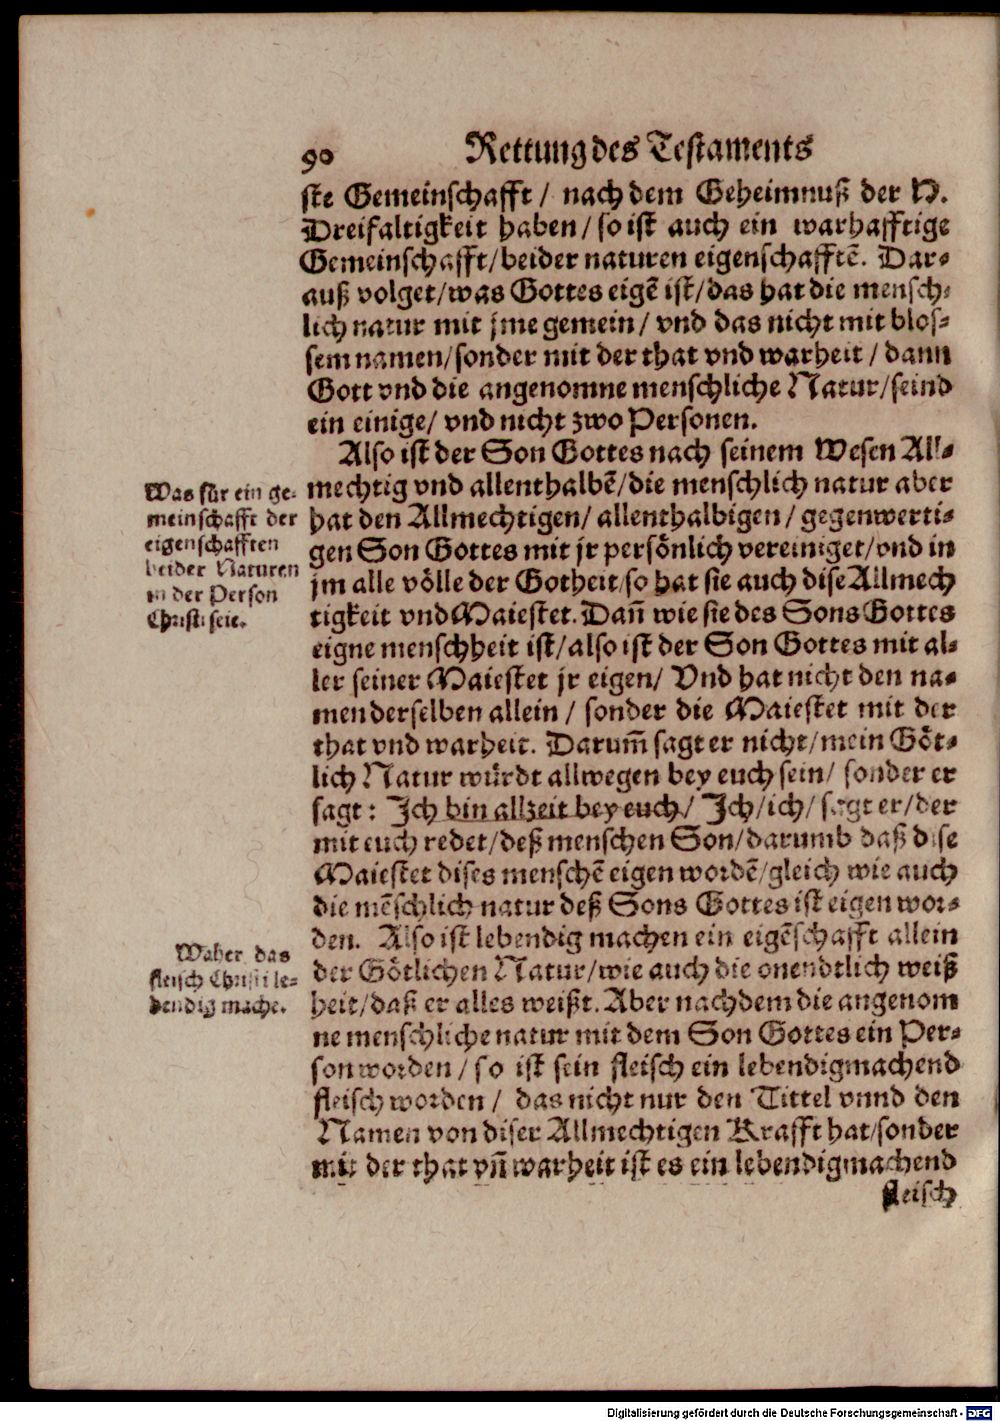 90 Rettung des Testaments
ste Gemeinschafft / nach dem Geheimnuß der H.
Dreifaltigkeit haben / so ist auch ein warhafftige
Gemeinschafft / beider naturen eigenschafftẽ. Dar-
auß volget / was Gottes eigẽ ist / das hat die mensch-
lich natur mit jme gemein / vnd das nicht mit blos-
sem namen / sonder mit der that vnd warheit / dann
Gott vnd die angenomne menschliche Natur / seind
ein einige / vnd nicht zwo Personen.
Also ist der Son Gottes nach seinem Wesen All-
mechtig vnd allenthalbẽ / die menschlich natur aber
hat den Allmechtigen / allenthalbigen / gegenwerti-
gen Son Gottes mit jr persönlich vereiniget / vnd in
jm alle völle der Gotheit / so hat sie auch dise Allmech
tigkeit vnd Maiestet. Dañ wie sie des Sons Gottes
eigne menschheit ist / also ist der Son Gottes mit al-
ler seiner Maiestet jr eigen / Vnd hat nicht den na-
men derselben allein / sonder die Maiestet mit der
that vnd warheit. Darum̃ sagt er nicht / mein Göt-
lich Natur würdt allwegen bey euch sein / sonder er
sagt: Ich bin allzeit bey euch / Ich / ich / sagt er / der
mit euch redet / deß menschen Son / darumb daß dise
Maiestet dises menschẽ eigen wordẽ / gleich wie auch
die mẽschlich natur deß Sons Gottes ist eigen wor-
den. Also ist lebendig machen ein eigẽschafft allein
der Götlichen Natur / wie auch die onendtlich weiß
heit / daß er alles weißt. Aber nachdem die angenom
ne menschliche natur mit dem Son Gottes ein Per-
son worden / so ist sein fleisch ein lebendigmachend
fleisch worden / das nicht nur den Tittel vnnd den
Namen von diser Allmechtigen Krafft hat / sonder
mit der that vñ warheit ist es ein lebendigmachend
fleisch
Was für ein ge-
meinschafft der
eigenschafften
beider Naturen
in der Person
Christi seie.
Waher das
fleisch Christi le-
bendig mache.
Digitalisierung gefördert durch die Deutsche Forschungsgemeinschaft - DFG